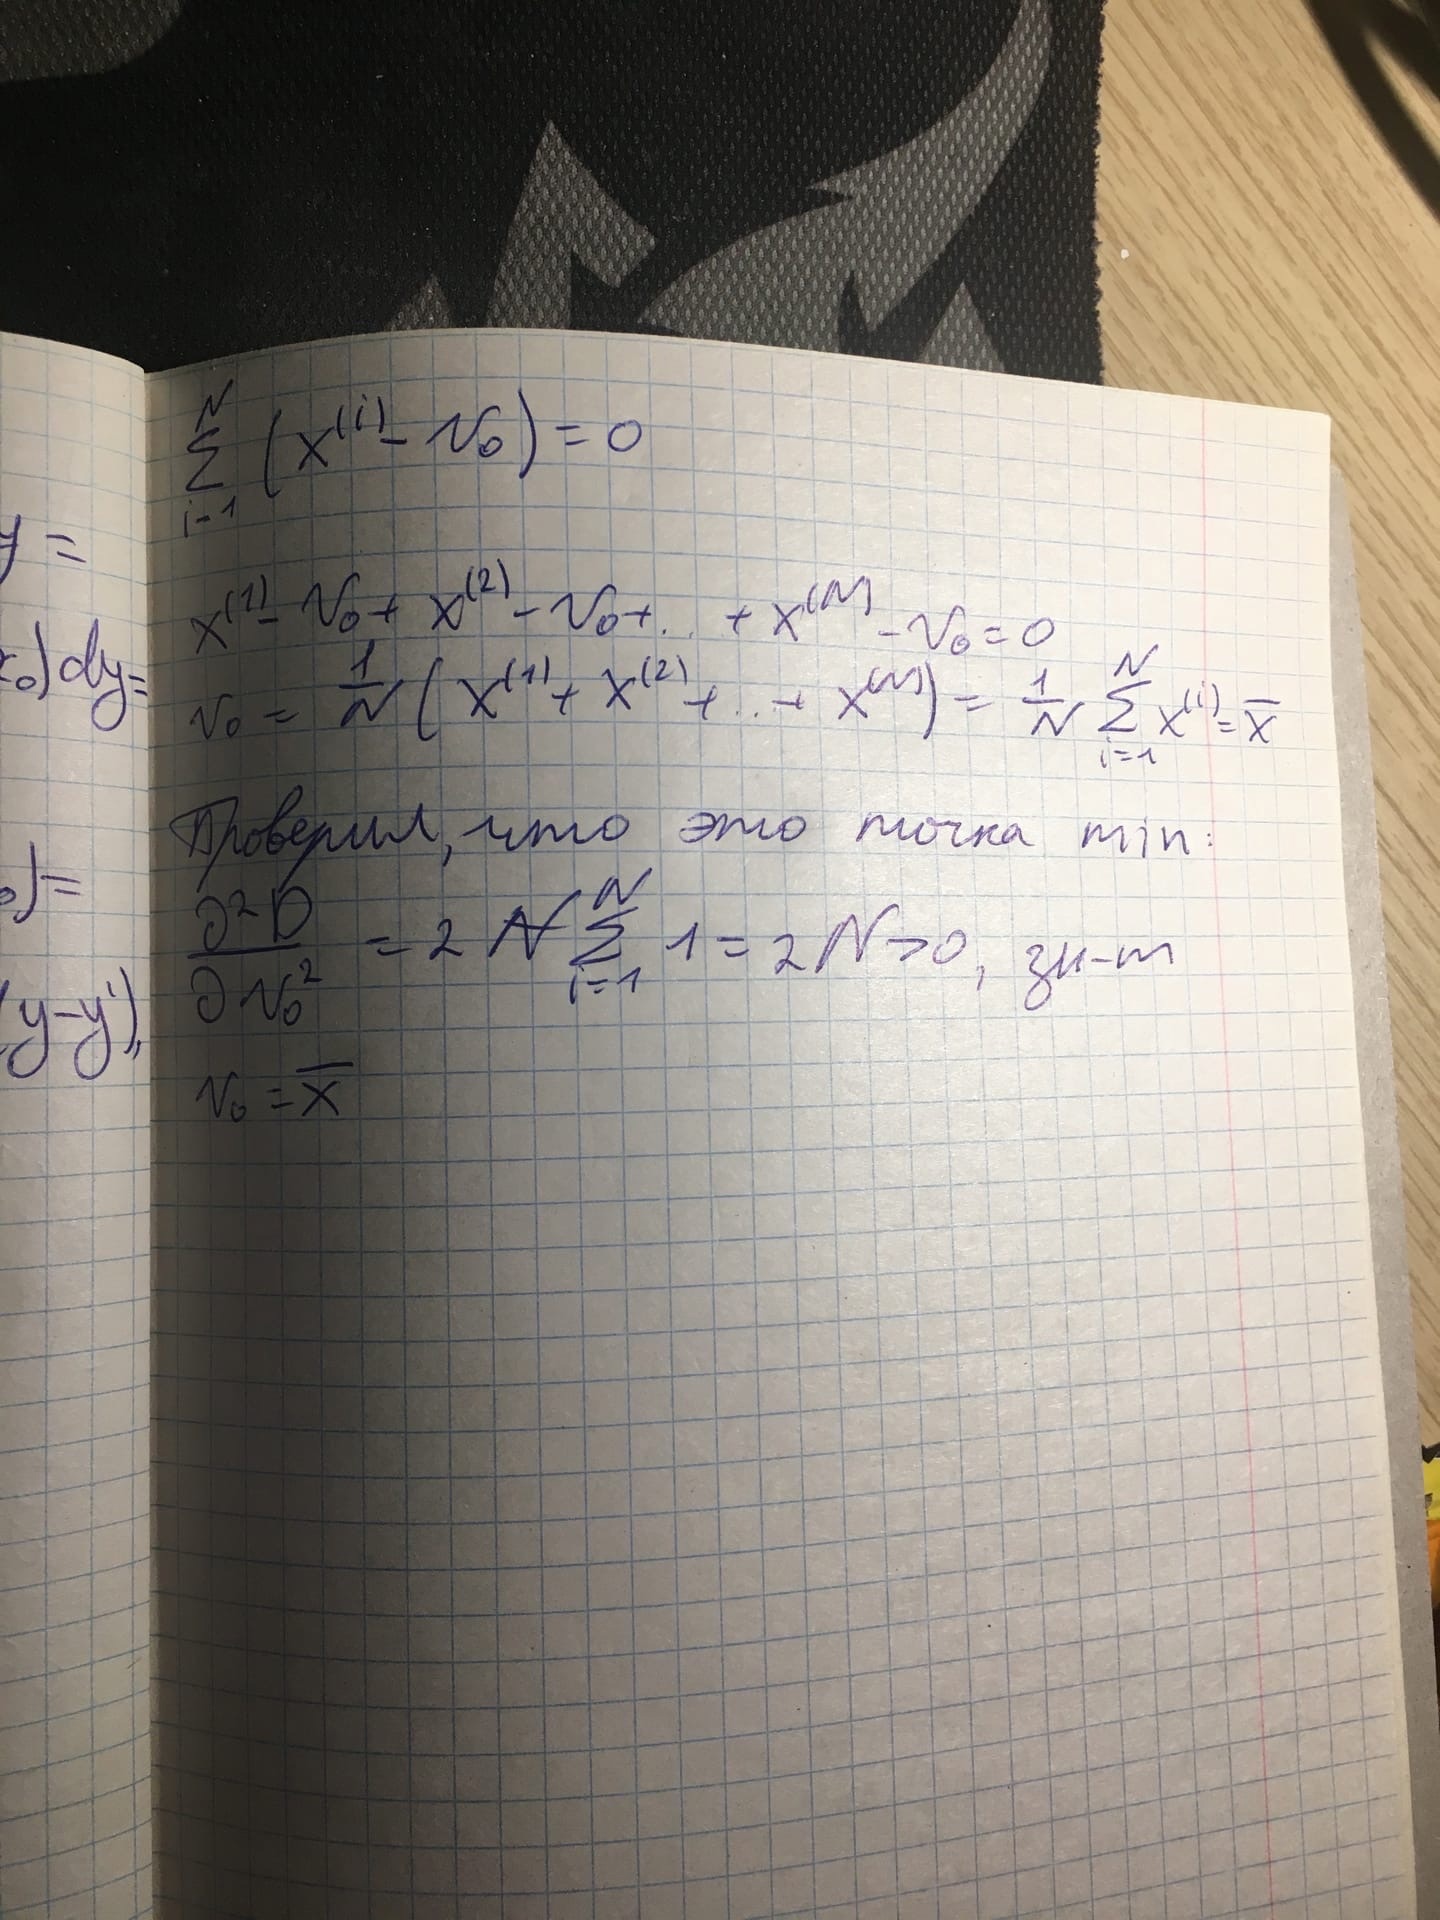 y =
x₀) dy =
₀) =
(y-y'),
N
∑ (x⁽ⁱ⁾ - v₀) = 0
i=1
x⁽¹⁾ - v₀ + x⁽²⁾ - v₀ + ... + x⁽ᴺ⁾ - v₀ = 0
v₀ = 1/N (x⁽¹⁾ + x⁽²⁾ + ... + x⁽ᴺ⁾) = 1/N ∑ᵢ₌₁ᴺ x⁽ⁱ⁾ = x̅
Проверим, что это точка min:
∂²D/∂v₀² = 2 ∑ᵢ₌₁ᴺ 1 = 2N > 0, зн-т
v₀ = x̅